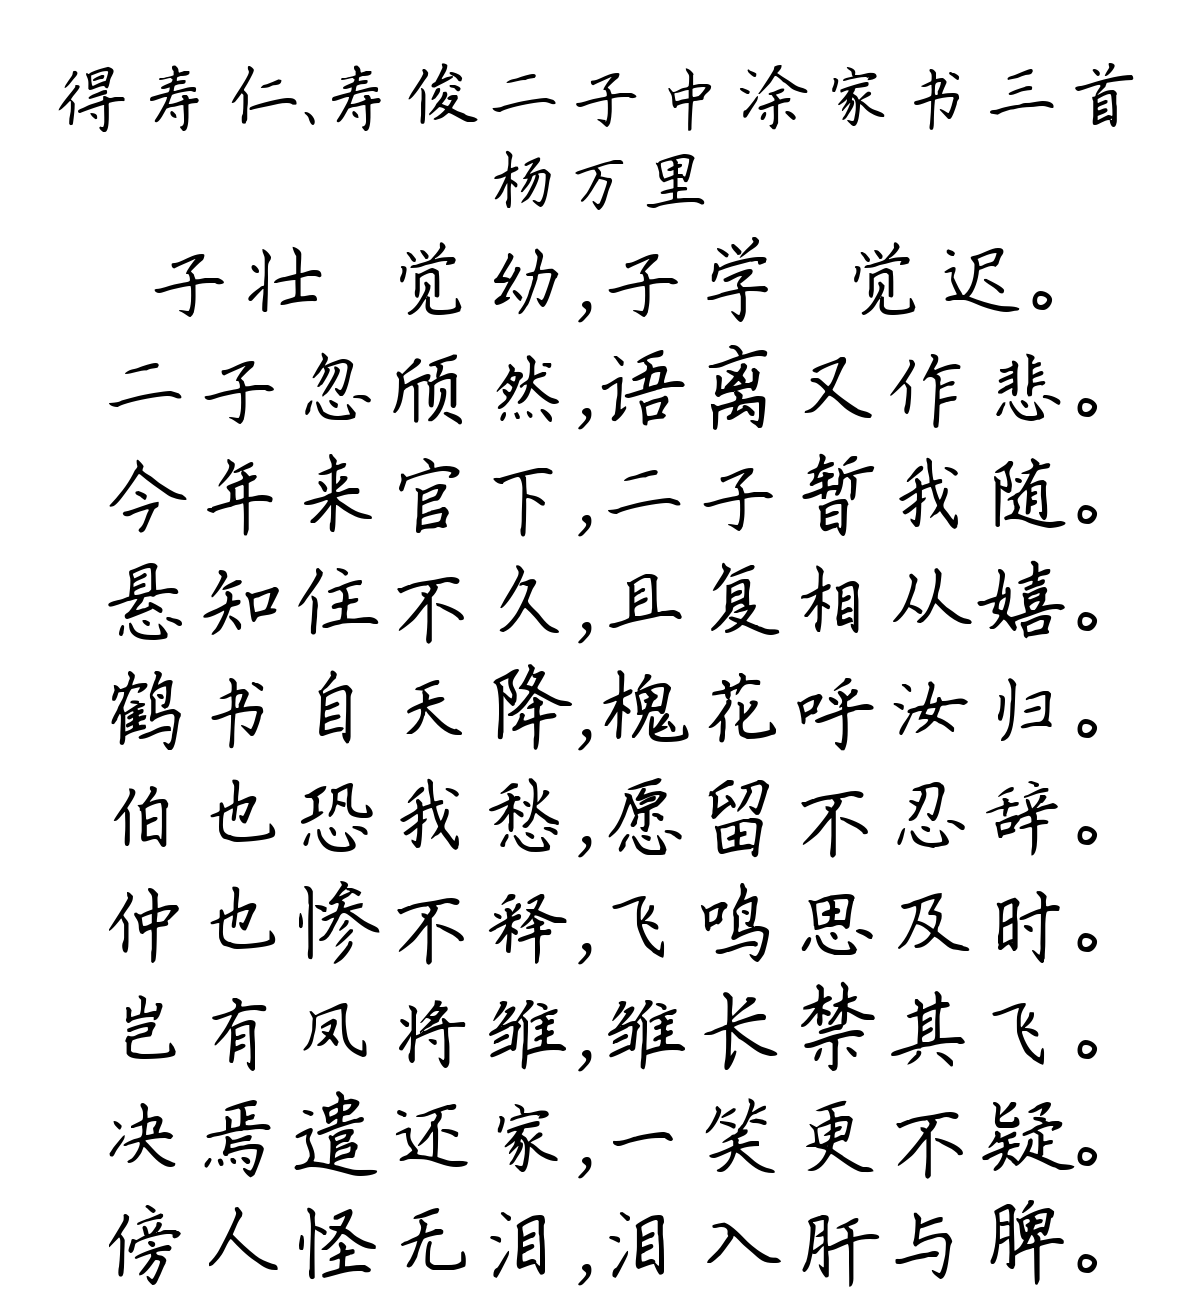 得寿仁、寿俊二子中涂家书三首
杨万里
子壮 觉幼,子学 觉迟。
二子忽颀然,语离又作悲。
今年来官下,二子暂我随。
悬知住不久,且复相从嬉。
鹤书自天降,槐花呼汝归。
伯也恐我愁,愿留不忍辞。
仲也惨不释,飞鸣思及时。
岂有凤将雏,雏长禁其飞。
决焉遣还家,一笑更不疑。
傍人怪无泪,泪入肝与脾。